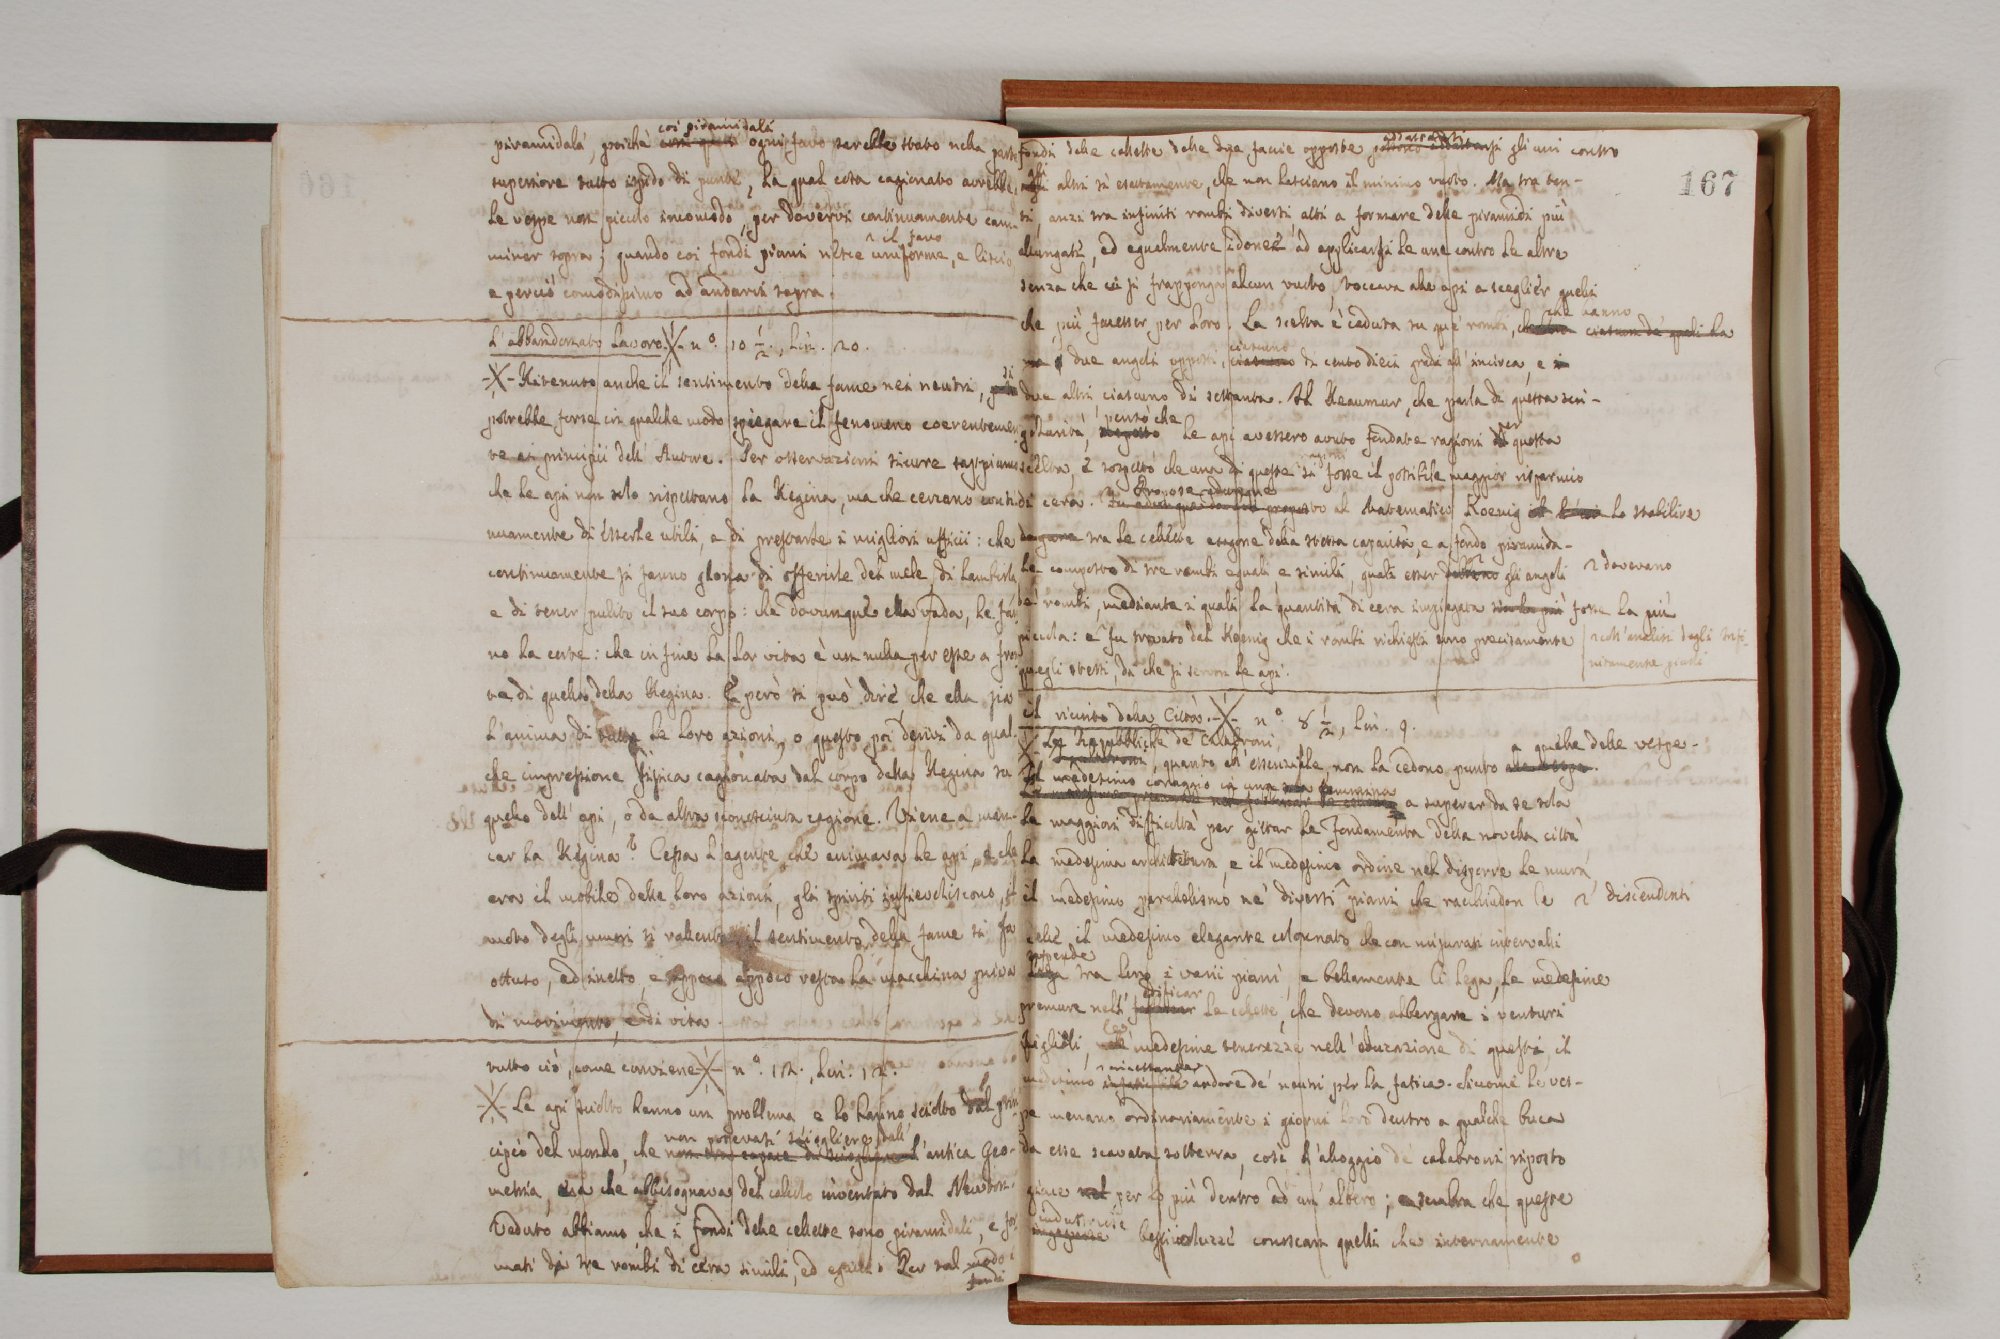 piramidali, poichè così piramidali ogni favo sarebbe stato nella parte
superiore tutto ispido di punte, la qual cosa cagionato avrebbe
le vespe non piccolo incomodo per dovervi continuamente cam-
minar sopra; quando coi fondi piani riesce il favo uniforme, e liscio,
e perciò comodissimo ad andarvi sopra.
L'abbandonato lavoro. -X- n.° 10 ½., lin. 20.
-X- Ritenuto anche il sentimento della fame nei neutri, si
potrebbe forse in qualche modo spiegare il fenomeno coerentemen-
te ai principii dell'Autore. Per osservazioni sicure sappiamo
che le api non solo rispettano la Regina, ma che cercano conti-
nuamente di esserle utili, e di prestarle i migliori ufficii: che
continuamente si fanno gloria di offerirle del mele, di lambirla,
e di tener pulito il suo corpo: che dovunque ella vada, le fan-
no la corte: che in fine la lor vita è un nulla per esse a fron-
te di quella della Regina. E però si può dire, che ella sia
l'anima di tutte le loro azioni, o questo poi derivi da qual-
che impressione fisica cagionata dal corpo della Regina su
quello dell'api, o da altra sconosciuta cagione. Viene a man-
car la Regina? Cessa l'agente, che animava le api, e che
era il mobile delle loro azioni, gli spiriti infievoliscono, il
moto degli umori si rallenta, il sentimento della fame si fa
ottuso, ed inetto, e appoco appoco resta la macchina priva
di movimento, e di vita.
tutto ciò, come conviene -X- n.° 12., lin. 12.
-X- Le api sciolto hanno un problema e lo hanno sciolto dal prin-
cipio del mondo, che non potevasi sciogliere dall'antica Geo-
metria, ma che abbisognava del calcolo inventato dal Newton.
Veduto abbiamo che i fondi delle cellette sono piramidali, e for-
mati da tre rombi di cera simili, ed eguali. Per tal modo i
fondi
167
fondi delle cellette delle due facie opposte addattansi gli uni contro
gli altri sì esattamente, che non lasciano il minimo vuoto. Ma tra tan-
ti, anzi tra infiniti rombi diversi atti a formare delle piramidi più
allungate, ed egualmente idonei ad applicarsi le une contro le altre
senza che ci si frapponga alcun vuoto, toccava alle api a sceglier quelli
che più facesser per loro. La scelta è caduta su que' rombi, che hanno
due angoli opposti, ciascuno di cento dieci gradi all'incirca, e
due altri ciascuno di settanta. Il Reaumur, che parla di questa sin-
golarità, pensò che le api avessero avuto fondate ragioni per questa
scelta, e sospettò che una di queste ragioni fosse il possibile maggior risparmio
di cera. Propose adunque al Matematico Koenig lo stabilire
tra le cellette esagone della stessa capacità, e a fondo piramida-
le composto di tre rombi eguali, e simili, quali esser dovevano gli angoli
de' rombi, mediante i quali la quantità di cera impiegata fosse la più
piccola: e fu trovato dal Koenig coll'analisi degli infi-
nitamente piccoli che i rombi richiesti sono precisamente
quegli stessi, di che si servon le api.
il recinto della Città. -X- n.° 8 ½, lin. 9.
-X- Le Repubbliche de' Calabroni, quanto all'essenziale, non la cedono punto a quelle delle vespe.
Il medesimo coraggio in una femmina a superar da se sola
le maggiori difficoltà per gittar le fondamenta della novella città,
la medesima architettura, e il medesimo ordine nel disporre le mura,
il medesimo parallelismo ne' diversi discendenti piani che racchiudon le
celle, il medesimo elegante colonnato che con misurati intervalli
sospende tra loro i varii piani, e bellamente li lega, le medesime
premure nell'edificar le cellette, che devono albergare i venturi
figliuoli, le medesime tenerezze nell'educazione di questi, il
medesimo incessante ardore de' neutri per la fatica. Siccome le ves-
pe menano ordinariamente i giorni loro dentro a qualche buca
da esse scavata sotterra, così l'alloggio de' calabroni riposto
giace per lo più dentro ad un albero; e sembra che queste
industrie bestioluzze conoscan quelli che internamente